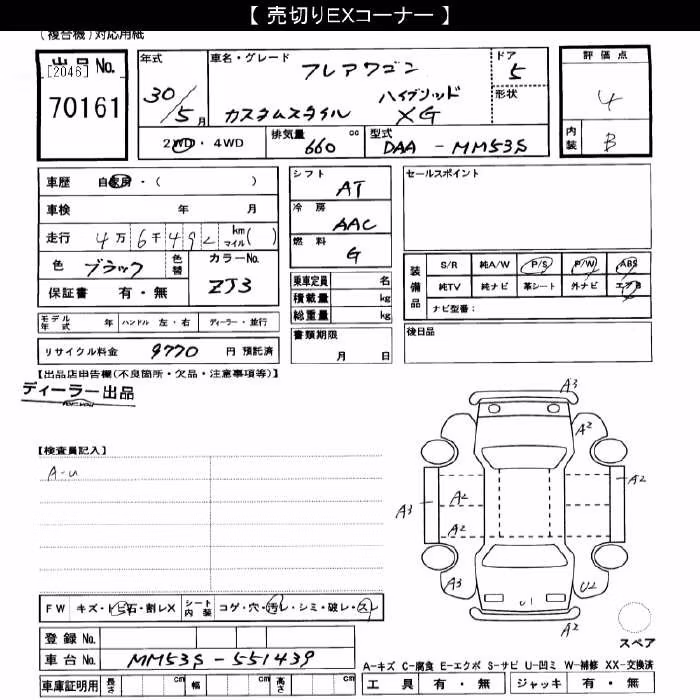 【 売切りEXコーナー 】
(複合機)対応用紙
出品 No.
[2046]
70161
年式
30/5月
車名・グレード
フレアワゴン
カスタムスタイル ハイブリッド XG
ドア
5
形状
評価点
4
内装
B
2WD・4WD
排気量
660 cc
型式
DAA - MM53S
車歴 自家用・( )
車検 年 月
走行 4万6千492 km マイル( )
色 ブラック 色替
カラーNo.
ZJ3
保証書 有・無
シフト
AT
冷房
AAC
燃料
G
乗車定員 名
積載量 kg
総重量 kg
書類期限
月 日
セールスポイント
装備品
S/R 純A/W P/S P/W ABS
純TV 純ナビ 革シート 外ナビ エアB
ナビ型番:
後日品
モデル年式 年 ハンドル 左・右 ディーラー・並行
リサイクル料金 9770 円 預託済
【出品店申告欄(不良箇所・欠品・注意事項等)】
ディーラー出品
【検査員記入】
A-u
A3
A2
A2
A3
A2
A2
A3
U2
U1
A2
スペア
FW キズ・トビ石・割レX シート内装 コゲ・穴・汚レ・シミ・破レ・スレ
登録 No.
車台 No. MM53S-551439
車庫証明用 長さ cm 幅 cm 高さ cm
A-キズ C-腐食 E-エクボ S-サビ U-凹ミ W-補修 XX-交換済
工具 有・無 ジャッキ 有・無